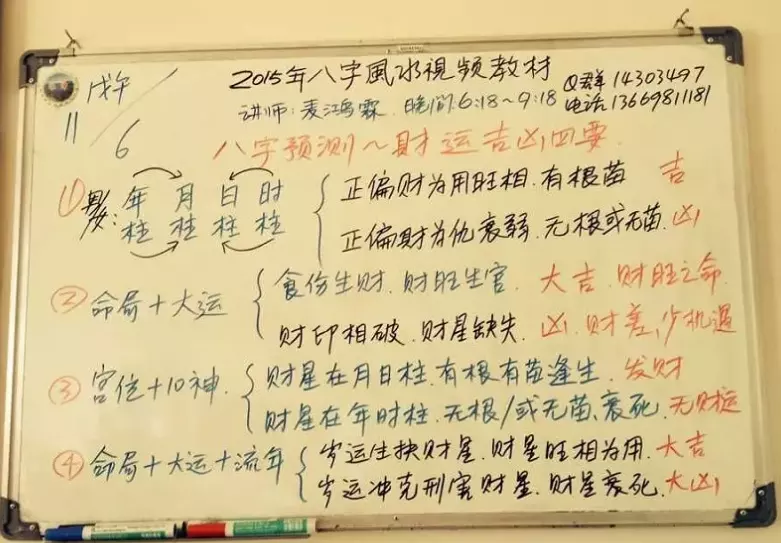 2015年八字風水視频教材
戊午
11/6
讲师:麦鸿霖 晚间:6:18~9:18
Q群 14303497
电话:13669811181
八字预测~财运吉凶四要
① 男女: 年柱 月柱 日柱 时柱
正偏财为用旺相.有根苗 吉
正偏财为仇衰弱.无根或无苗.凶
② 命局+大运
食伤生财.财旺生官.大吉.财旺之命.
财印相破.财星缺失.凶.财差,少机遇
③ 宫位+10神.
财星在月日柱.有根有苗逢生.发财
财星在年时柱.无根/或无苗、衰死.无财运
④ 命局+大运+流年
岁运生扶财星.财星旺相为用.大吉
岁运冲克刑害财星.财星衰死.大凶